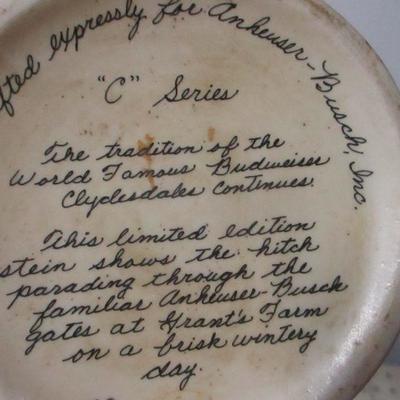 fted expressly for Anheuser-Busch, Inc.
"C" Series
The tradition of the
World Famous Budweiser
Clydesdales continues.
This limited edition
stein shows the hitch
parading through the
familiar Anheuser-Busck
gates at Grant's Farm
on a brisk wintery
day.